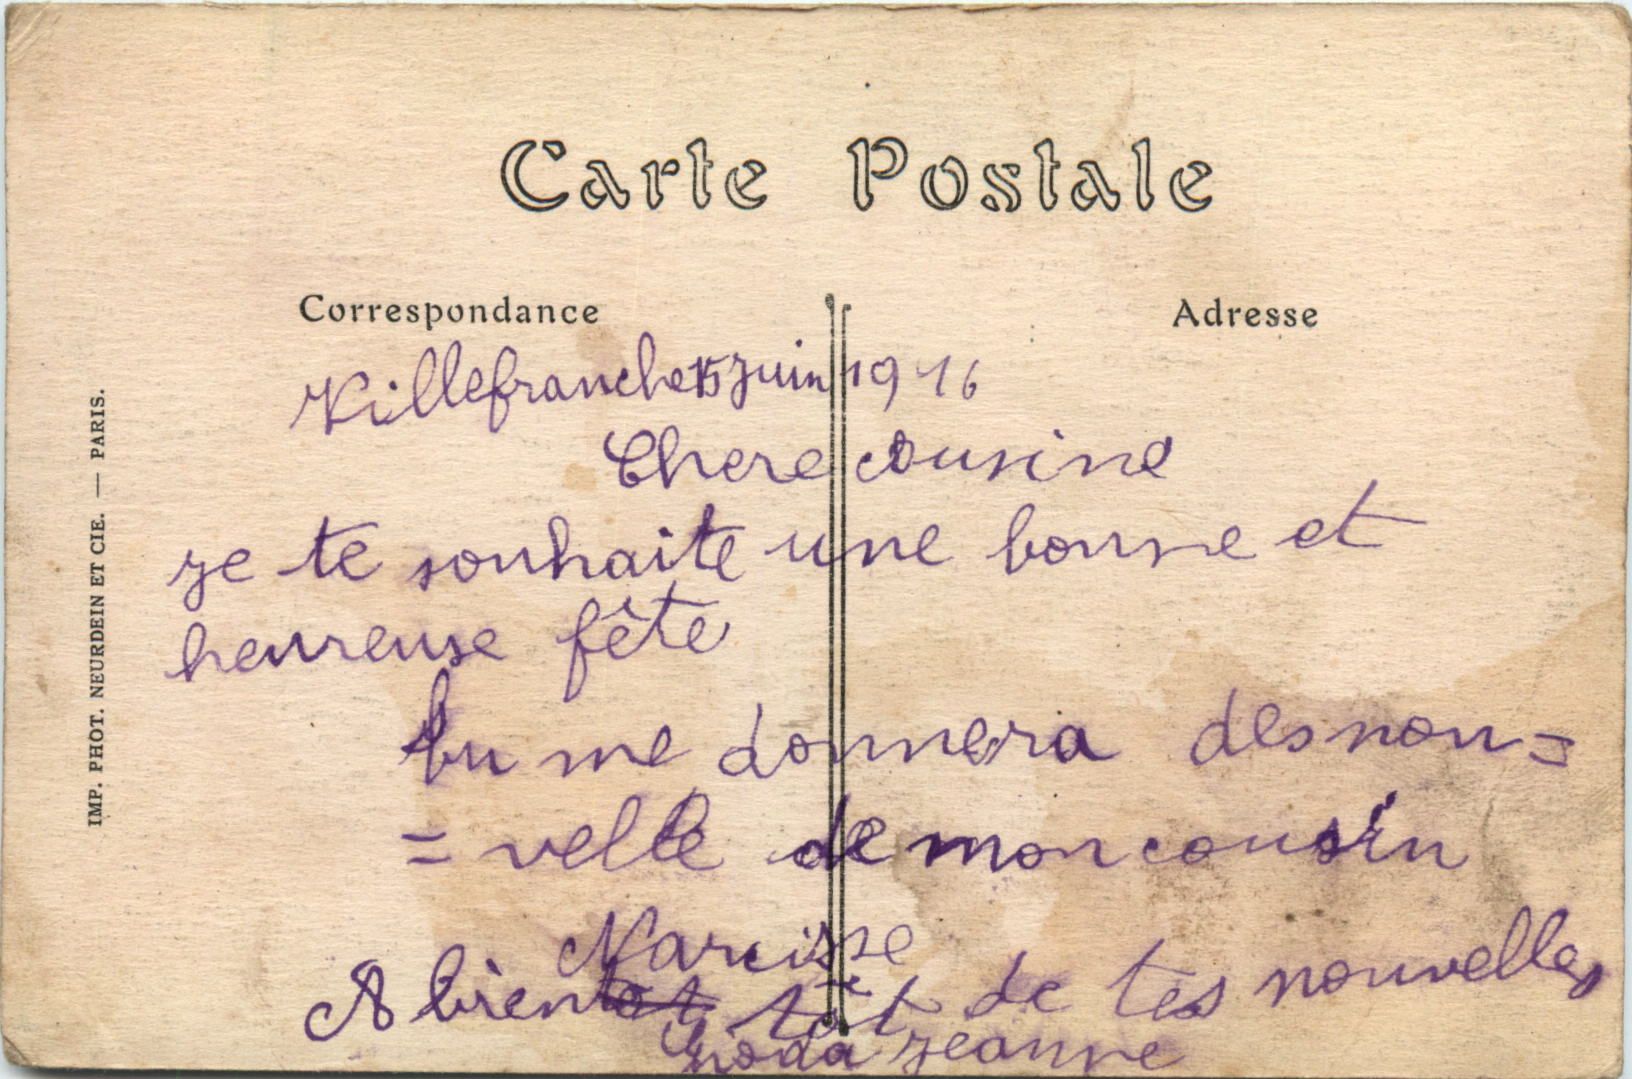 Carte Postale
Correspondance
Adresse
IMP. PHOT. NEURDEIN ET CIE. — PARIS.
Villefranche 15 juin 1916
Chere cousine
je te souhaite une bonne et
heureuse fête
tu me donnera des nou=
=velle de mon cousin
Narcisse
A bientot tôt de tes nouvelles
jeanne